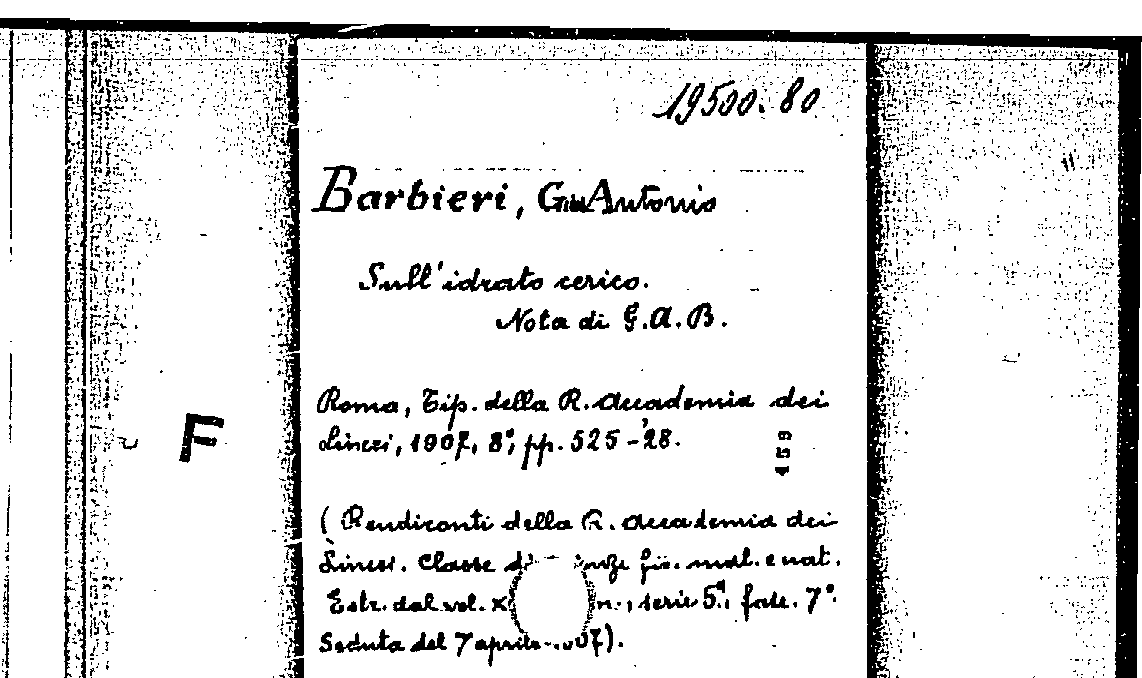 19500.80
Barbieri, G. Antonio
Sull'idrato cerico.
Nota di G.A.B.
Roma, Tip. della R. Accademia dei
Lincei, 1907, 8°, pp. 525-'28.
459
F
(Rendiconti della R. Accademia dei
Lincei. Classe di fis. mat. e nat.
Estr. dal vol. serie 5ª, fasc. 7°.
Seduta del 7 aprile 1907).